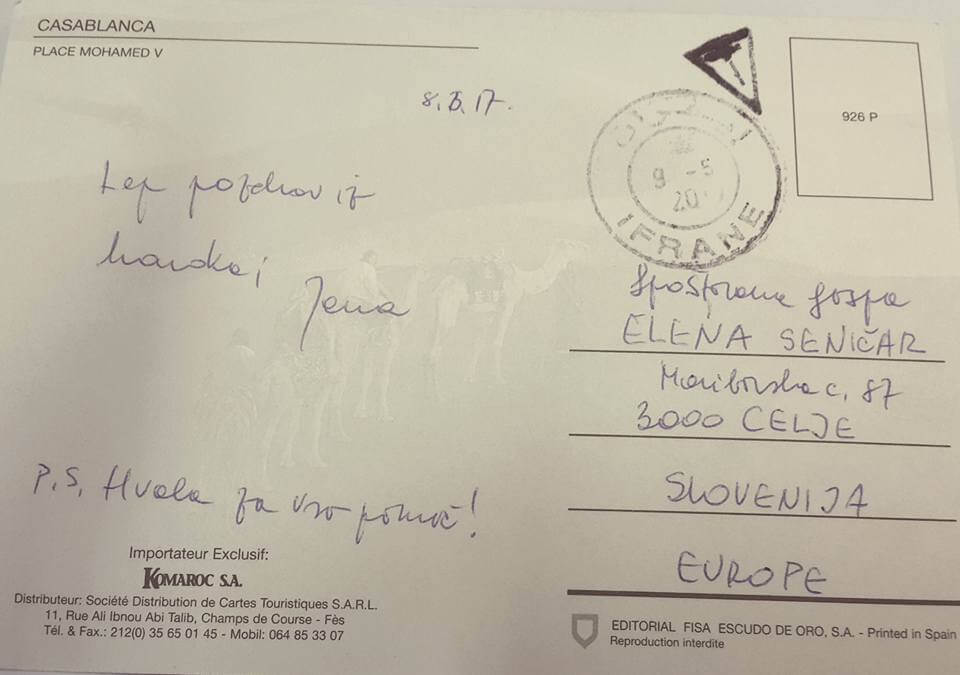 CASABLANCA
PLACE MOHAMED V
8.5.17.
Lep pozdrav iz
Jena
P.S. Hvala za vso pomoč!
Importateur Exclusif:
KOMAROC S.A.
Distributeur: Société Distribution de Cartes Touristiques S.A.R.L.
11, Rue Ali Ibnou Abi Talib, Champs de Course - Fès
Tél. & Fax.: 212(0) 35 65 01 45 - Mobil: 064 85 33 07
T
926 P
9 -5
20
IFRANE
Spoštovana gospa
ELENA SENIČAR
Mariborska c. 87
3000 CELJE
SLOVENIJA
EUROPE
EDITORIAL FISA ESCUDO DE ORO, S.A. - Printed in Spain
Reproduction interdite